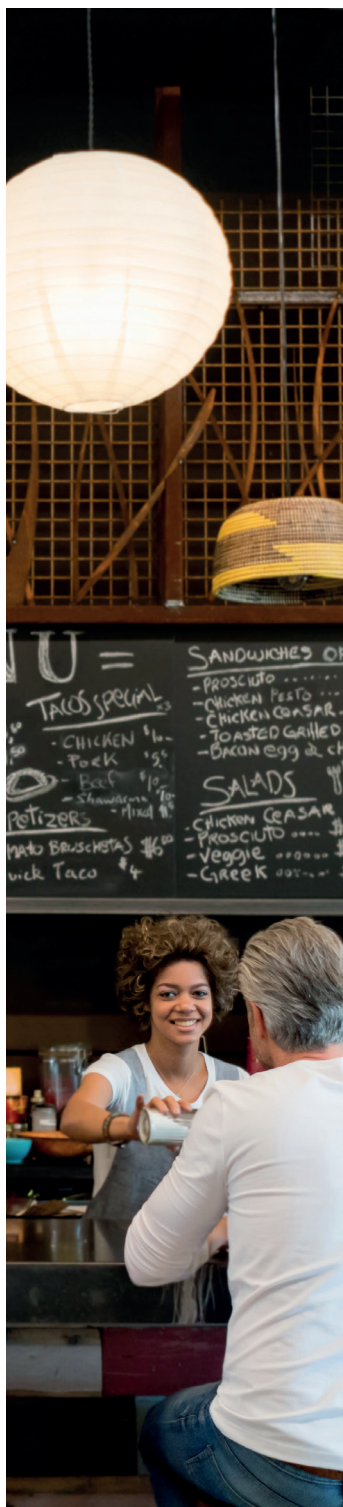 NU =
TACOS SPECIAL x3
- CHICKEN $10-
- PORK $5.
- Beef $10.
- Shawarma 10-
- Mixed
PETIZERS
MATO BRUSCHETAS $6.00
UICK TACO $4
SANDWICHES OF
- PROSCIUTO ......
- CHICKEN PESTO ...
- CHICKEN CEASAR.
- TOASTED GRILLED
- BACON egg & CH
SALADS
- CHICKEN CEASAR
- PROSCIUTO .... $
- Veggie ...... $
- GREEK ...... $